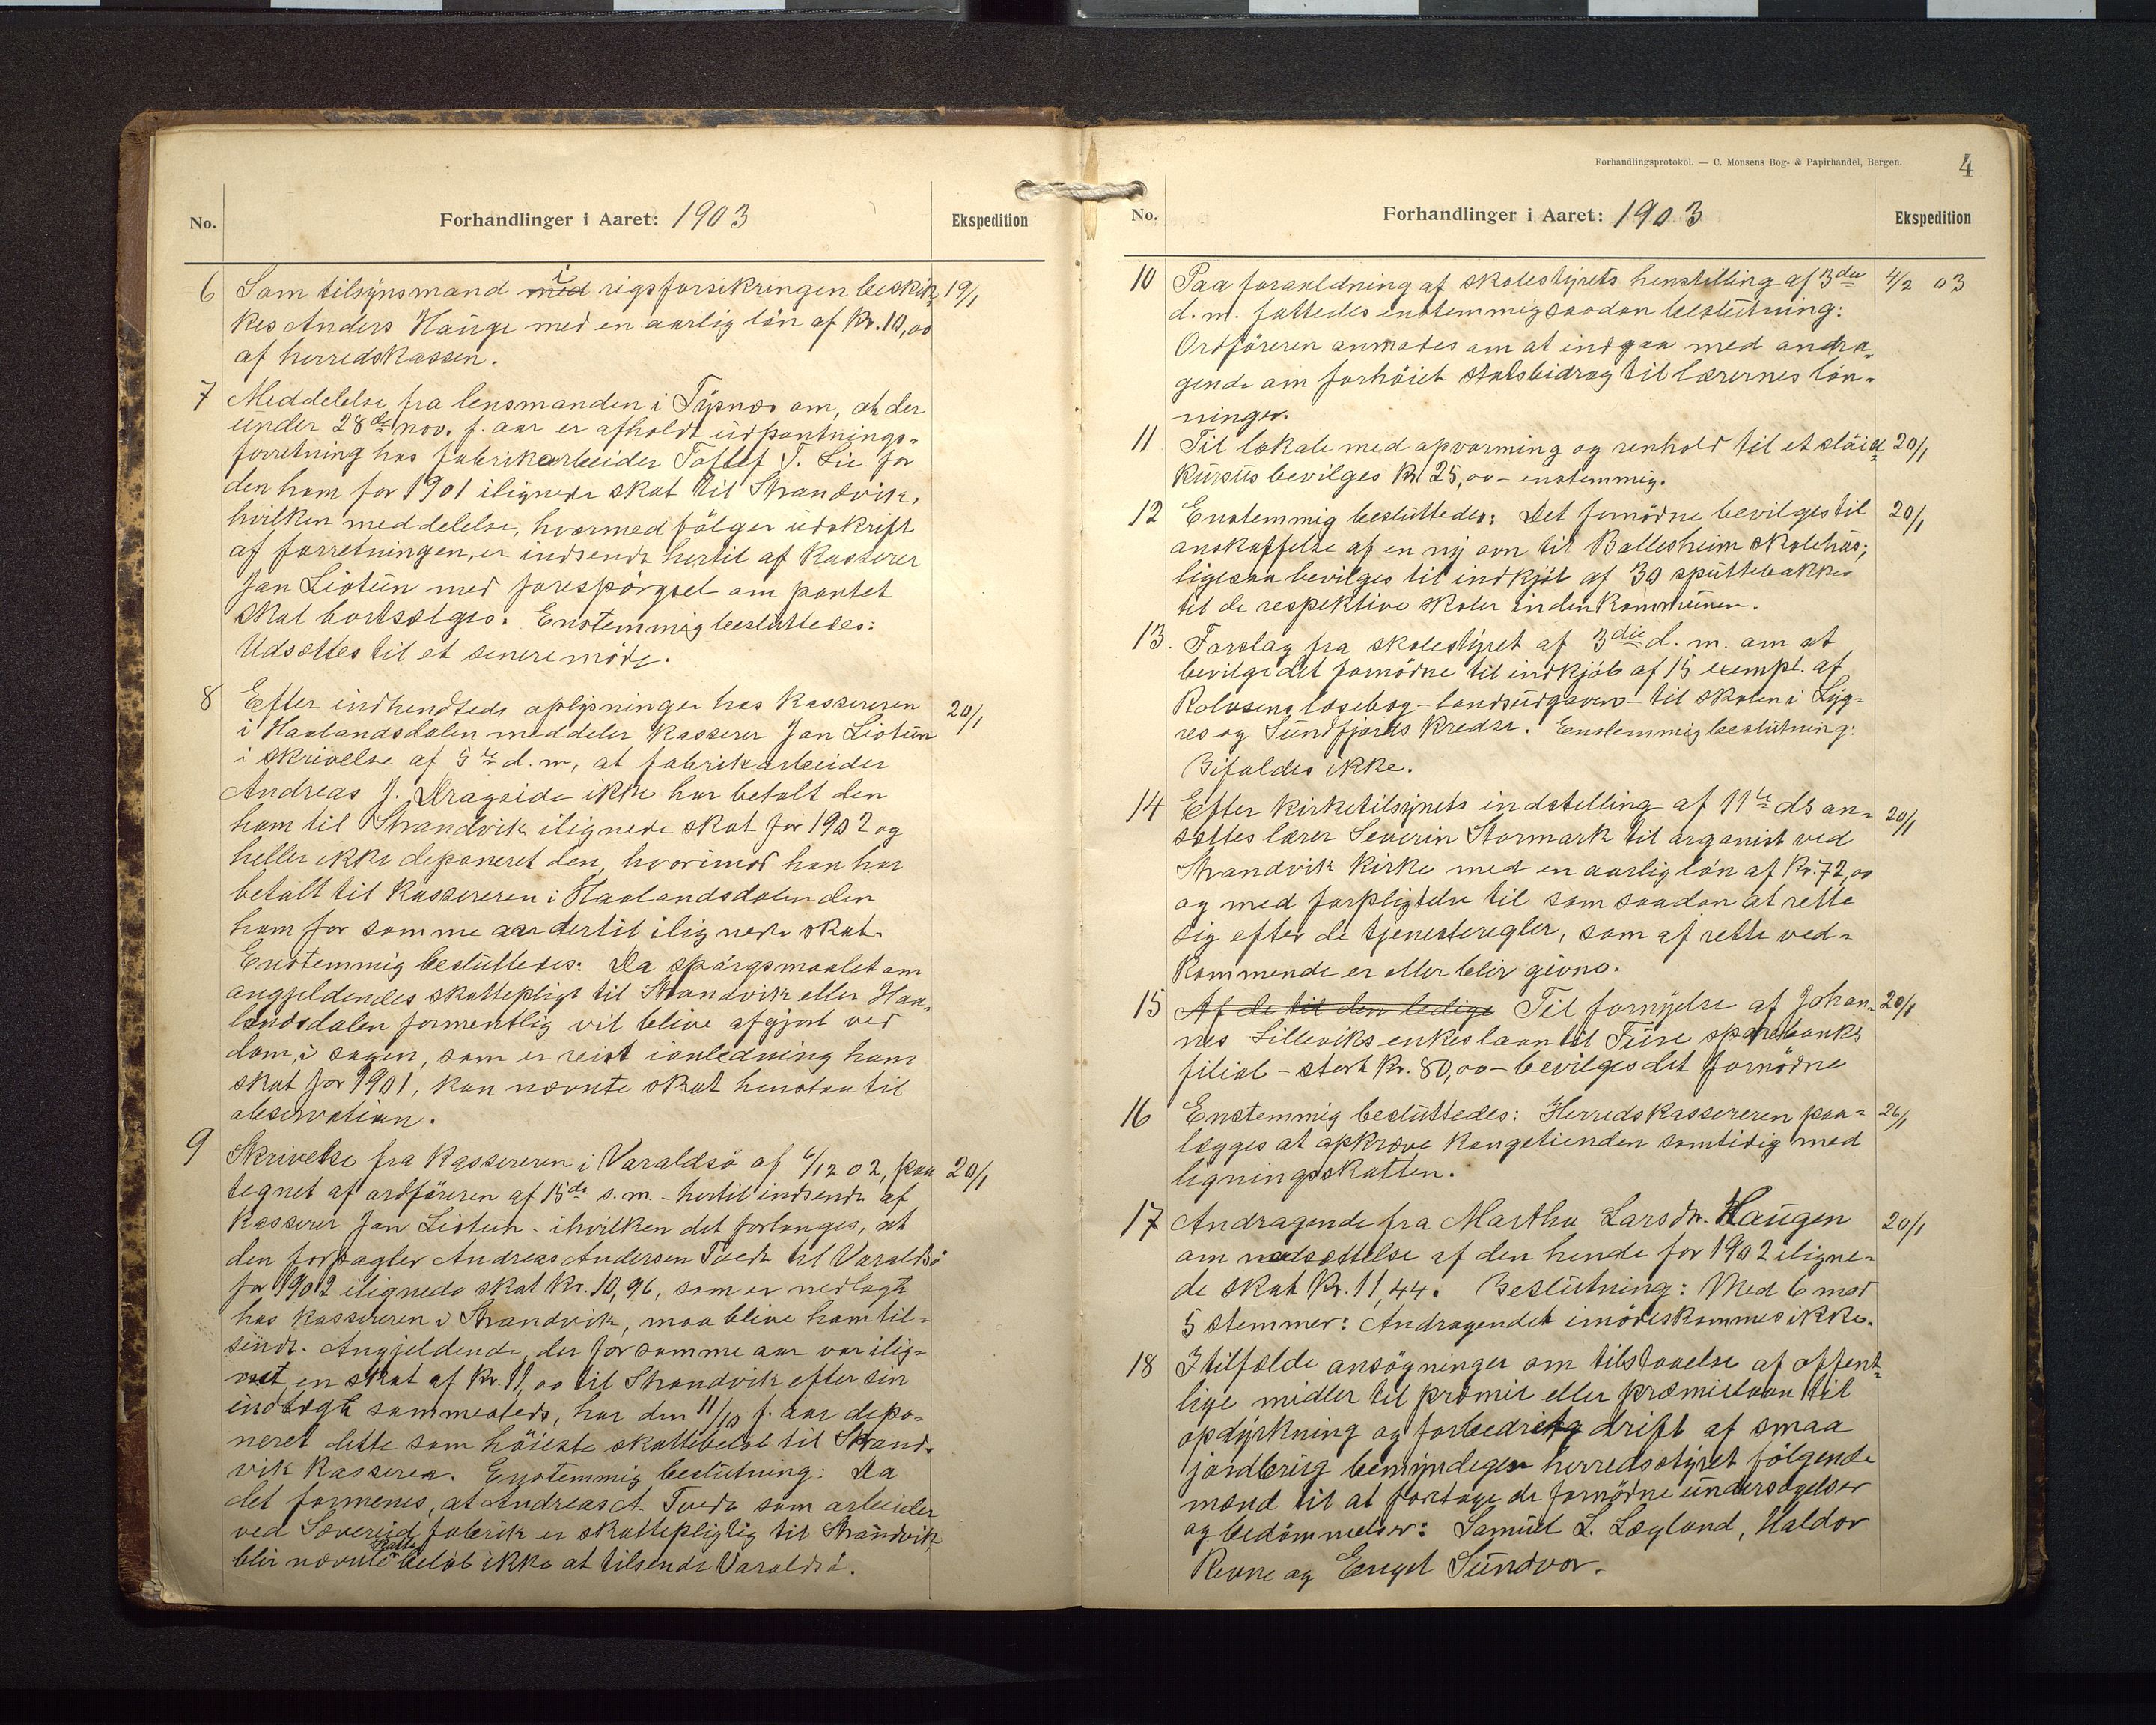 No.
Forhandlinger i Aaret: 1903
Ekspedition
6 Som tilsynsmand med i rigsforsikringen beskik- 19/1
kes Anders Hauge med en aarlig lön af Kr. 10,00
af herredskassen.
7 Meddelelse fra lensmanden i Tysnæs om, at der
under 28de nov. f. aar er afholdt udpantnings-
forretning hos fabrikarbeider T. Lie for
den ham for 1901 ilignede skat til Strandvik,
hvilken meddelelse, hvormed fölger udskrift
af forretningen, er indsendt hertil af Kasserer
Jan Liotun med forespörgsel om pantet
skal bortsælges. Enstemmig besluttedes:
Udsættes til et senere möde.
8 Efter indhendtede oplysninger hos Kassereren 20/1
i Haalandsdalen meddeler Kasserer Jan Liotun
i skrivelse af 5te d. m., at fabrikarbeider
Andreas J. Drageide ikke har betalt den
ham til Strandvik ilignede skat for 1902 og
heller ikke deponeret den, hvorimod han har
betalt til Kassereren i Haalandsdalen den
ham for samme aar dertil ilignede skat.
Enstemmig besluttedes: Da spörgsmaalet om
angjeldendes skattepligt til Strandvik eller Haa-
landsdalen formentlig vil blive afgjort ved
dom, i sagen, som er reist i anledning hans
skat for 1901, kan nævnte skat henstaa til
observation.
9 Skrivelse fra Kassereren i Varaldsö af 6/12 02, paa 20/1
tegnet af ordföreren af 15de s. m. - hertil indsendt af
Kasserer Jan Liotun - i hvilken det forlanges, at
den forpagter Andreas Andersen Tvedt til Varaldsö
for 1902 ilignede skat Kr. 10,96, som er nedlagt
hos Kassereren i Strandvik, maa blive ham til-
sendt. Angjeldende, der for samme aar var ilig-
net en skat af Kr. 11,00 til Strandvik efter sin
indtægt sammesteds, har den 11/10 f. aar depo-
neret dette som höieste skattebelöb til Strand-
vik Kasserer. Enstemmig beslutning: Da
det formenes, at Andreas A. Tvedt som arbeider
ved Sævereid fabrik er skattepligtig til Strandvik,
blir nævnte skatte beløb ikke at tilsende Varaldsö.
Forhandlingsprotokol. — C. Monsens Bog- & Papirhandel, Bergen.
4
No.
Forhandlinger i Aaret: 1903
Ekspedition
10 Paa foranledning af skolestyrets henstilling af 3die 4/2 03
d. m. fattedes enstemmig saadan beslutning:
Ordföreren anmodes om at indgaa med andra-
gende om forhöiet statsbidrag til lærernes lön-
ninger.
11 Til lokale med opvarming og renhold til et slöid 20/1
kursus bevilges Kr. 25,00 - enstemmig.
12 Enstemmig besluttedes: Det fornödne bevilges til 20/1
anskaffelse af en ny ovn til Ballesheim skolehus;
ligesaa bevilges til indkjöb af 30 spyttebakker
til de respektive skoler inden Kommunen.
13. Forslag fra skolestyret af 3die d. m. om at
bevilge det fornödne til indkjöb af 15 exempl. af
Rolvsens læsebog - landsudgaven - til skolen i Lyg-
res og Sundfjords Kredse. Enstemmig beslutning:
Bifaldes ikke.
14 Efter kirketilsynets indstilling af 11te ds an- 20/1
sættes lærer Severin Stormark til organist ved
Strandvik Kirke med en aarlig lön af Kr. 72,00
og med forpligtelse til som saadan at rette
sig efter de tjenesteregler, som af rette ved-
kommende er eller blir givne.
15 Af de til den ledige Til fornyelse af Johan- 20/1
nes Lilleviks enkes laan til Fuse sparebanks
filial - stort Kr. 80,00 - bevilges det fornödne
16 Enstemmig besluttedes: Herredskassereren paa- 26/1
lægges at opkræve Kongetienden samtidig med
ligningsskatten.
17 Andragende fra Martha Larsdtr. Haugen 20/1
om nedsættelse af den hende for 1902 iligne-
de skat Kr. 11,44. Beslutning: Med 6 mod
5 stemmer: Andragendet imödeskommes ikke.
18 I tilfælde ansögninger om tilstaaelse af offent-
lige midler til præmie eller præmielaan til
opdyrkning og forbedret drift af smaa
jordbrug bemyndiger herredsstyret fölgende
mænd til at foretage de fornödne undersögelser
og bedömmelser: Samuel L. Lægland, Haldor
Revne og Engel Sundvor.